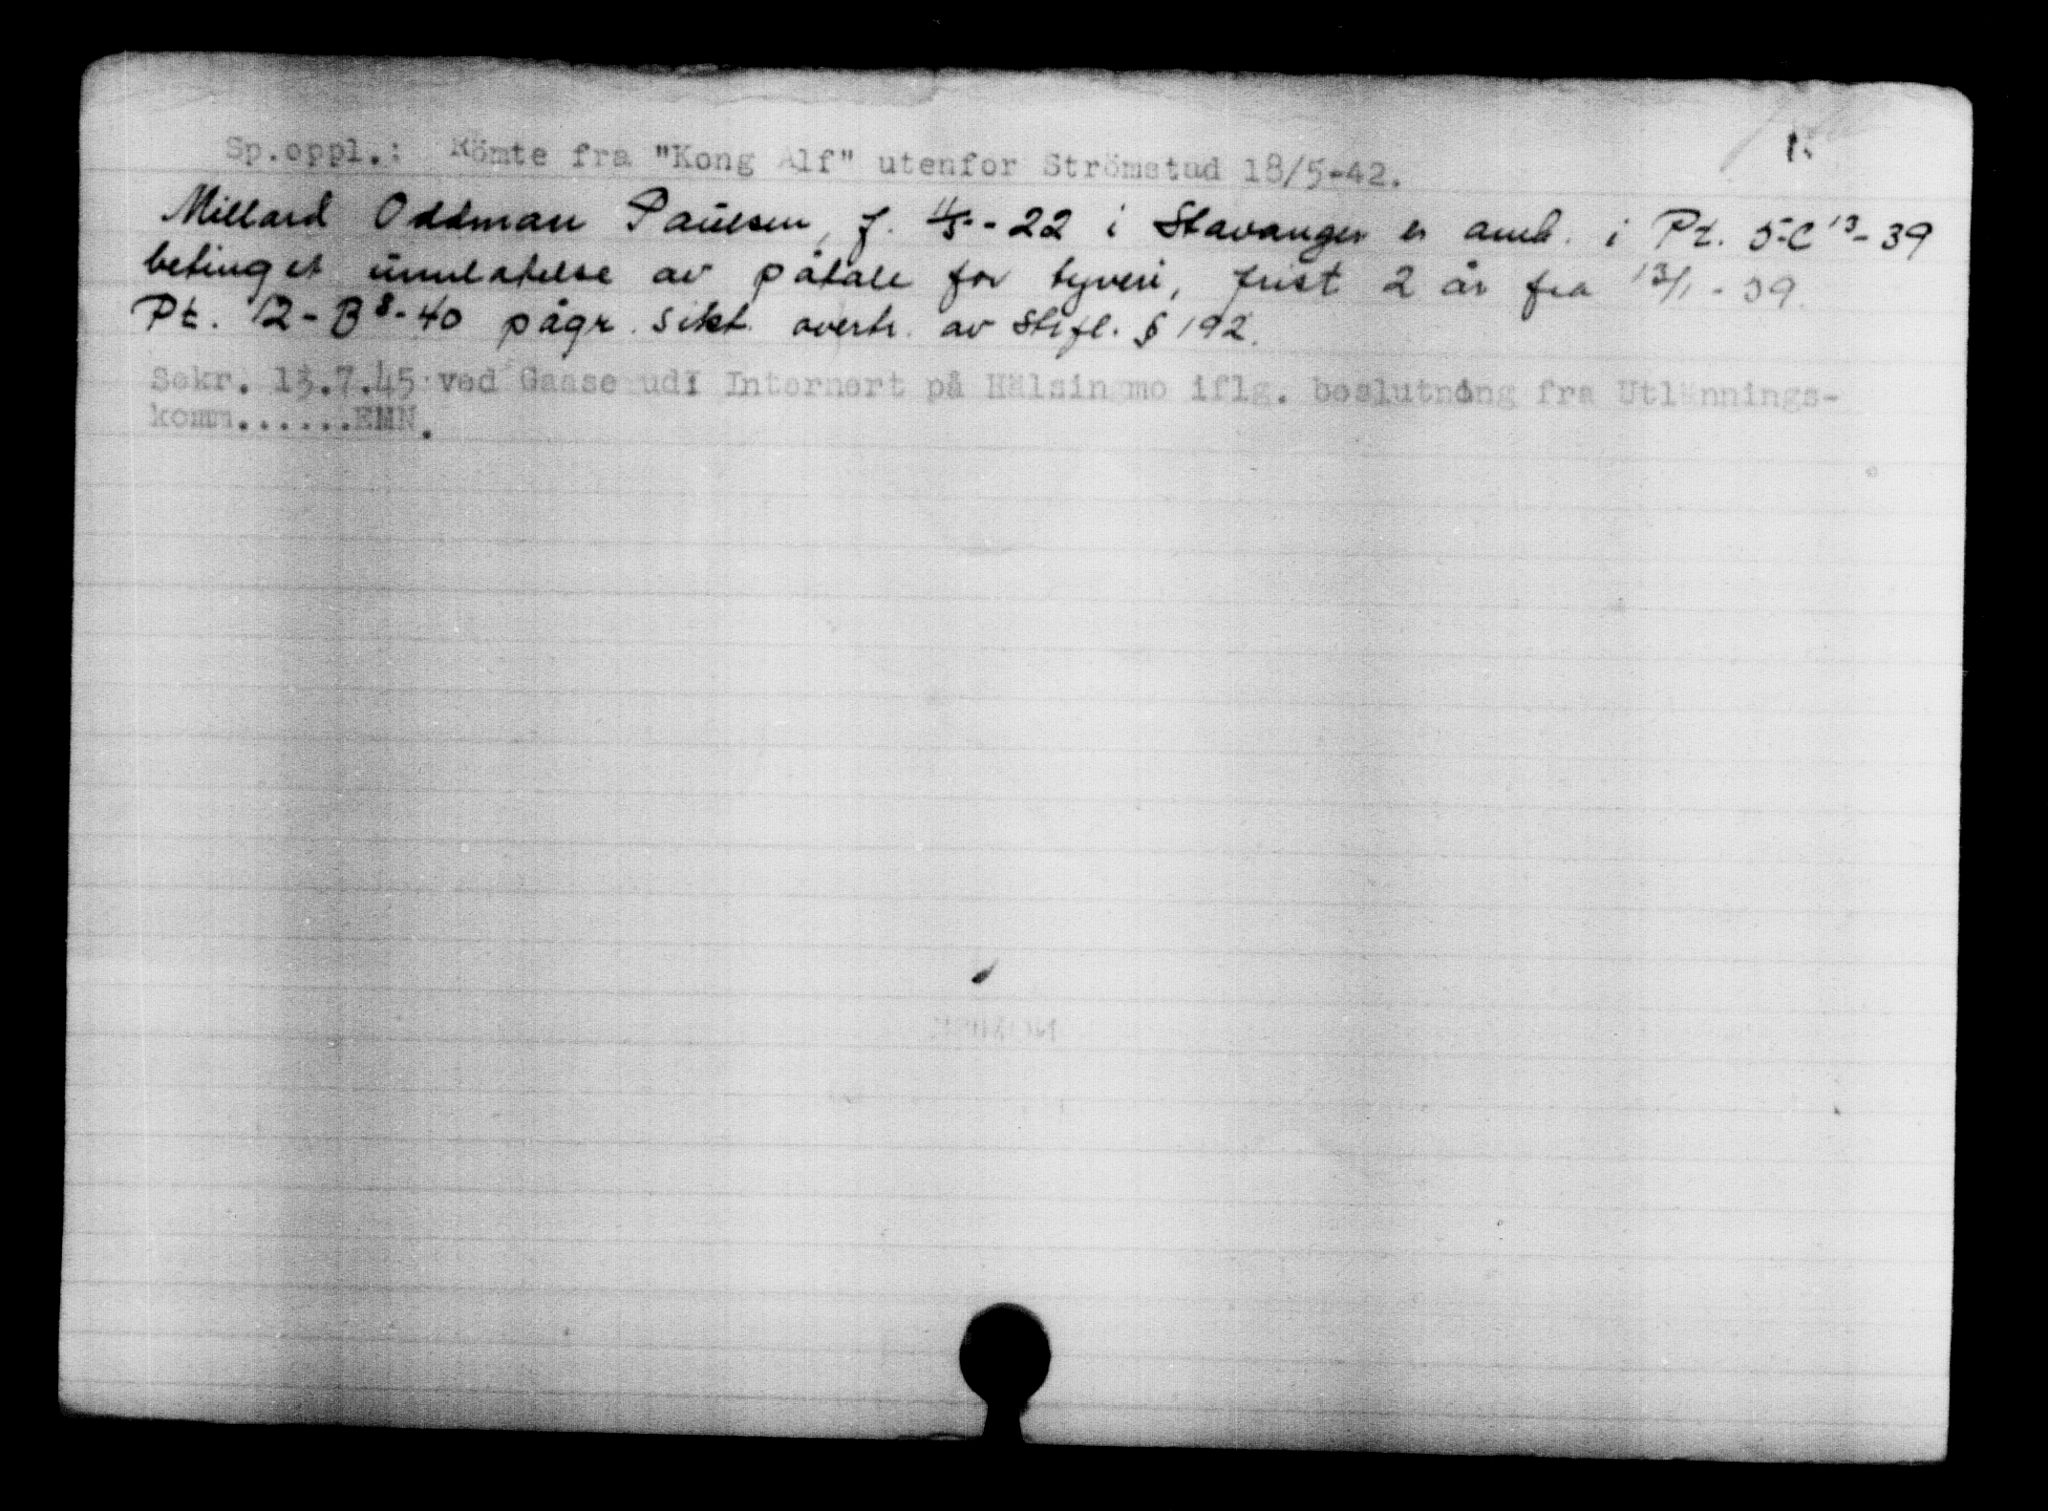 Sp.oppl.: Römte fra "Kong Alf" utenfor Strömstad 18/5-42.
Millard Oddman Paulsen, f. 4/5-22 i Stavanger er anm. i Pt. 5-C 13-39
betinget unnlatelse av påtale for tyveri, frist 2 år fra 13/1-39.
Pt. 12-B 8-40 pågr. sikt. overtr. av Strfl. § 192.
Sekr. 13.7.45 ved Gaaserudi Internert på Hälsingmo iflg. beslutning fra Utlännings-
komm......EMN.